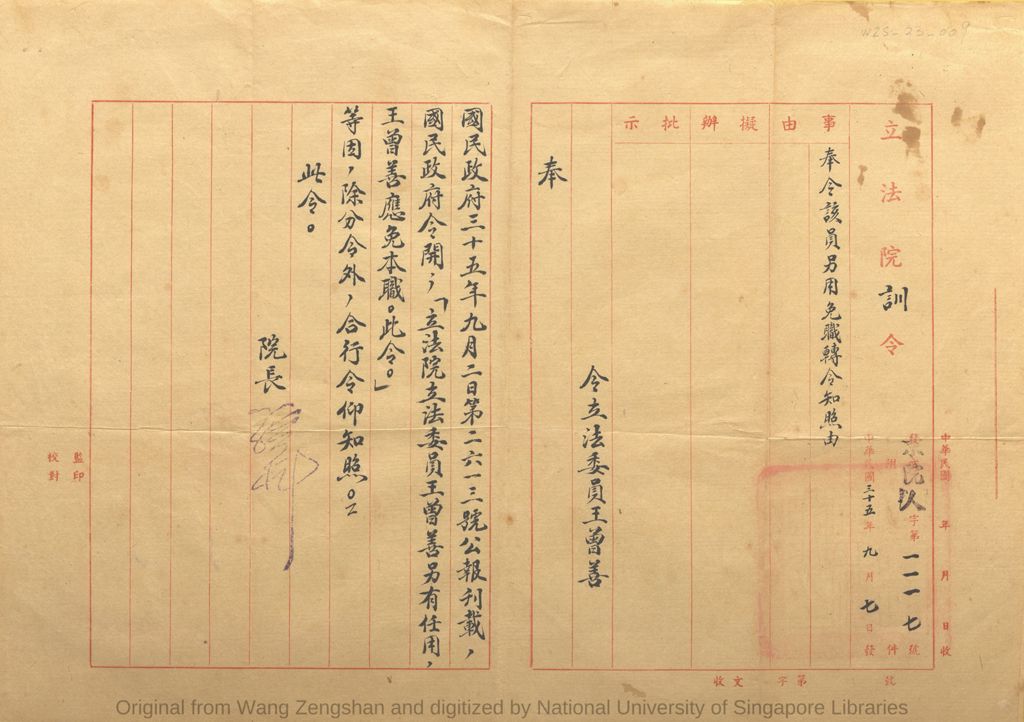 WZS-23-009
中華民國 年 月 日收
字第一一一七號
附 件
中華民國三十五年九月七日發
立法院訓令
事由擬辦批示
奉令該員另用免職轉令知照由
令立法委員王曾善
奉
國民政府三十五年九月二日第二六一三號公報刊載,
國民政府令開;「立法院立法委員王曾善另有任用,
王曾善應免本職。此令。」
等因,除分令外,合行令仰知照。
此令。
院長
收文 字第 號
監印
校對
Original from Wang Zengshan and digitized by National University of Singapore Libraries